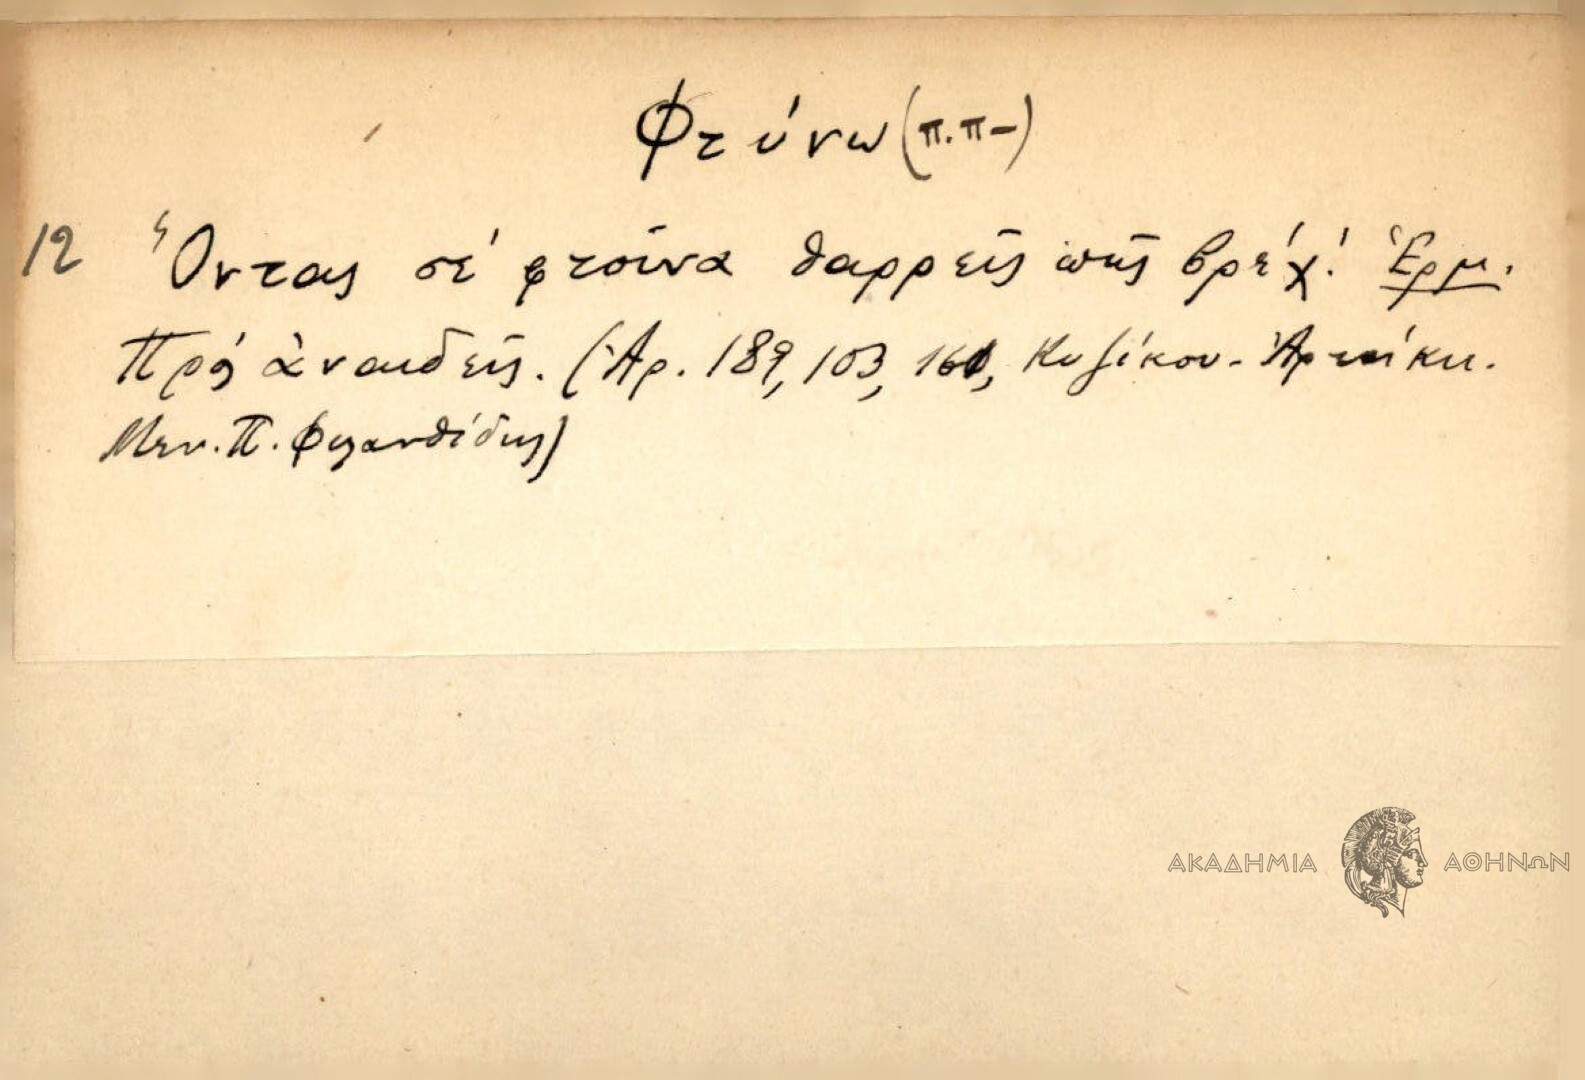 Φτύνω (π.π-)
12 Ὅντας σέ φτοῦνα θαρρεῖς πῆς βρέχ'. Ἑρμ.
Πρός ἀναιδεῖς. (Ἀρ. 189, 103, Κυζίκου - Ἀρτάκη.
Μεν. Π. Φιλανθίδης)
ΑΚΑΔΗΜΙΑ ΑΘΗΝΩΝ